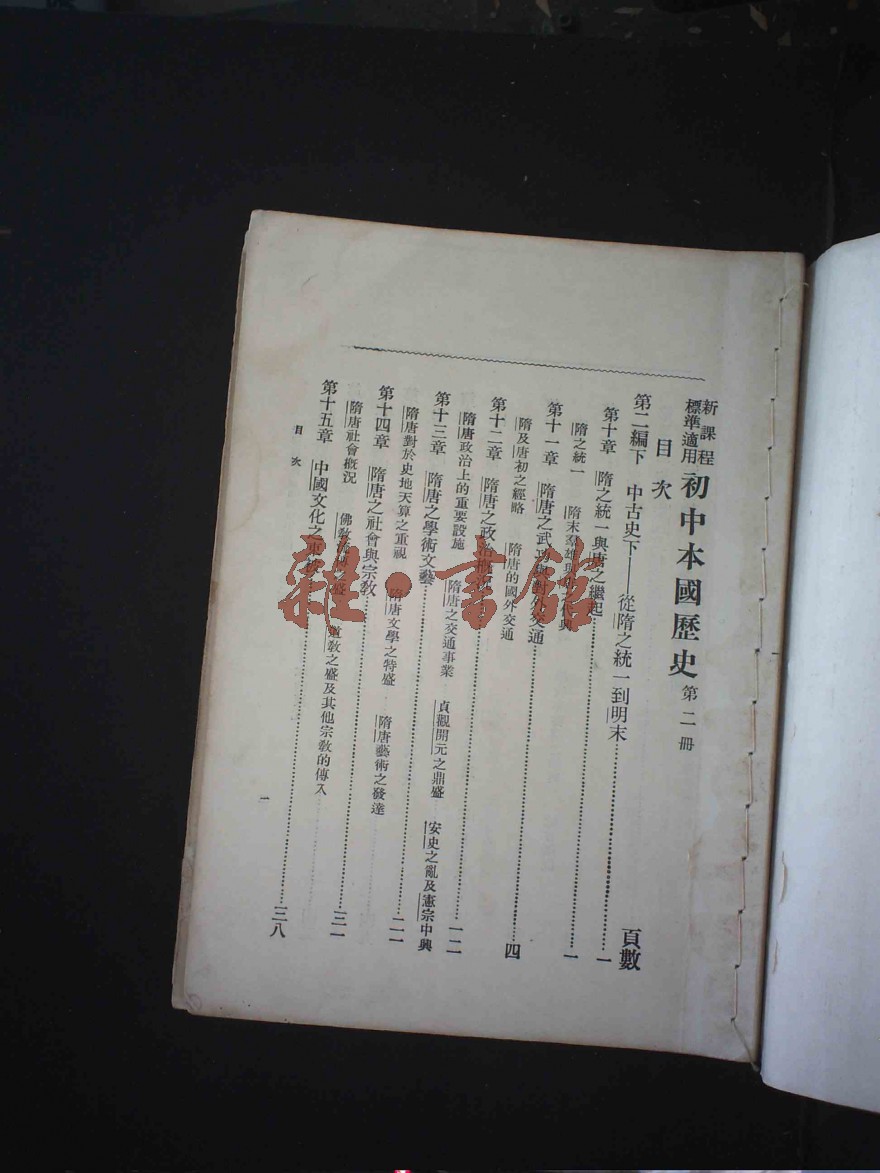 新課程標準適用 初中本國歷史 第二冊
目次
頁數
第二編下 中古史下——從隋之統一到明末 一
第十章 隋之統一與唐之繼起 一
隋之統一 隋末羣雄
第十一章 隋唐之武功與對外交通 四
隋及唐初之經略 隋唐的國外交通
第十二章 隋唐之政治概況 一二
隋唐政治上的重要設施 隋唐之交通事業 貞觀開元之鼎盛 安史之亂及憲宗中興
第十三章 隋唐之學術文藝 二一
隋唐對於史地天算之重視 隋唐文學之特盛 隋唐藝術之發達
第十四章 隋唐之社會與宗教 三一
隋唐社會概況 佛教 之盛 道教之盛及其他宗教的傳入
第十五章 中國文化之東被 三八
目次
一
雜·書館